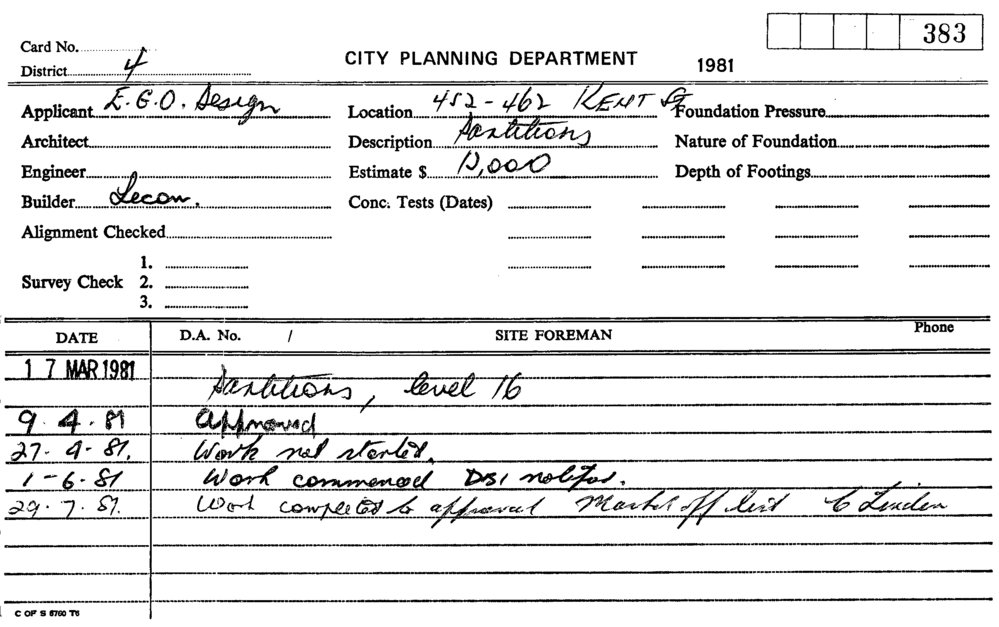 383
Card No.
CITY PLANNING DEPARTMENT 1981
District 4
Applicant E.G.O. Design Location 452-462 KENT St Foundation Pressure
Architect Description Partitions Nature of Foundation
Engineer Estimate $ 12,000 Depth of Footings
Builder Lecon. Conc. Tests (Dates)
Alignment Checked
1.
Survey Check 2.
3.
DATE D.A. No. / SITE FOREMAN Phone
17 MAR 1981
Partitions, level 16
9.4.81 Approved
27-4-81. Work not started.
1-6-81 Work commenced DSI
29.7.81. Work completed to approval Marked off list C Linden
C OF S 6760 T6